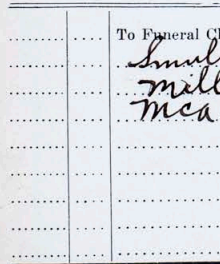 To Funeral Ch
Smul
Mill
Mca